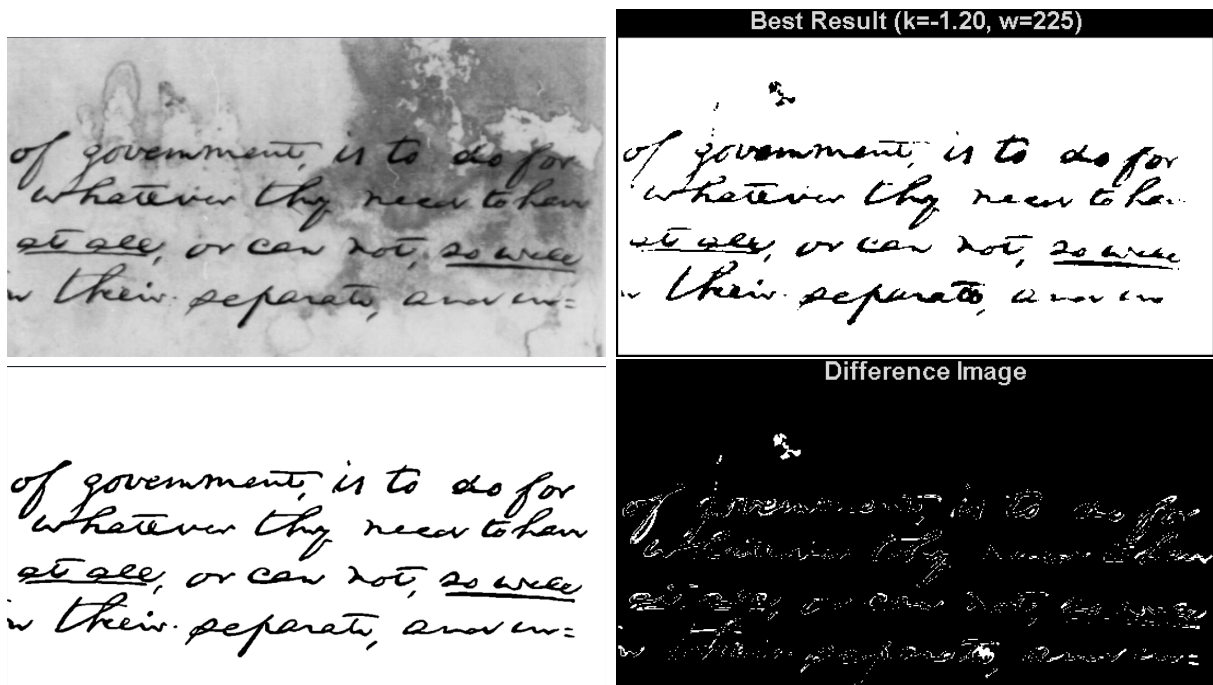 Best Result (k=-1.20, w=225)
of government, is to do for
whatever they need to have
at all, or can not, so well
in their separate, and in=
of government, is to do for
whatever they need to ha
at all, or can not, so well
in their separate, and in
of government, is to do for
whatever they need to have
at all, or can not, so well
in their separate, and in=
Difference Image
of government, is to do for
whatever they need to have
at all, or can not, so well
in their separate, and in=